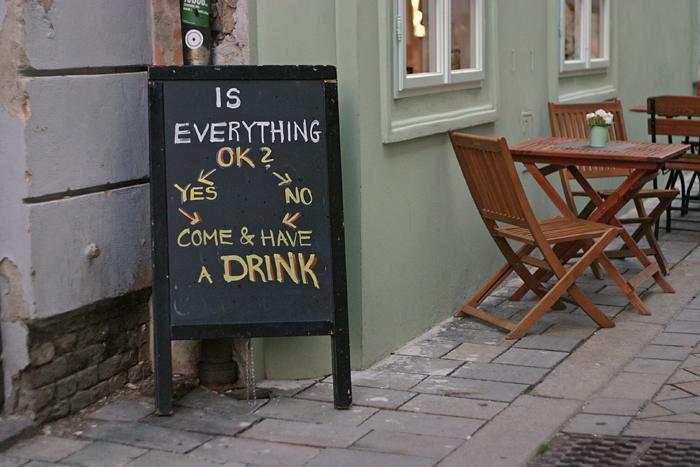 IS
EVERYTHING
OK?
YES NO
COME & HAVE
A DRINK